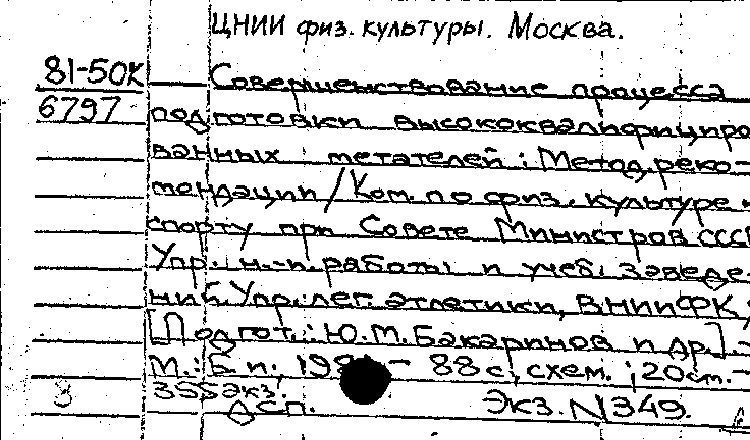 ЦНИИ физ. культуры. Москва.
81-50К Совершенствование процесса
6797 подготовки высококвалифициро
ванных метателей: Метод. реко-
мендации / Ком. по физ. культуре и
спорту при Совете Министров СССР
Упр. н.-и. работы и учеб. заведе.
ний. Упр. лег. атлетики, ВНИИФК,
[Подгот.: Ю.М. Бакаринов и др.]. -
М.: Б. и., - 88 с., схем.; 20 см. -
3 355 экз.
сп. Экз. N 349.